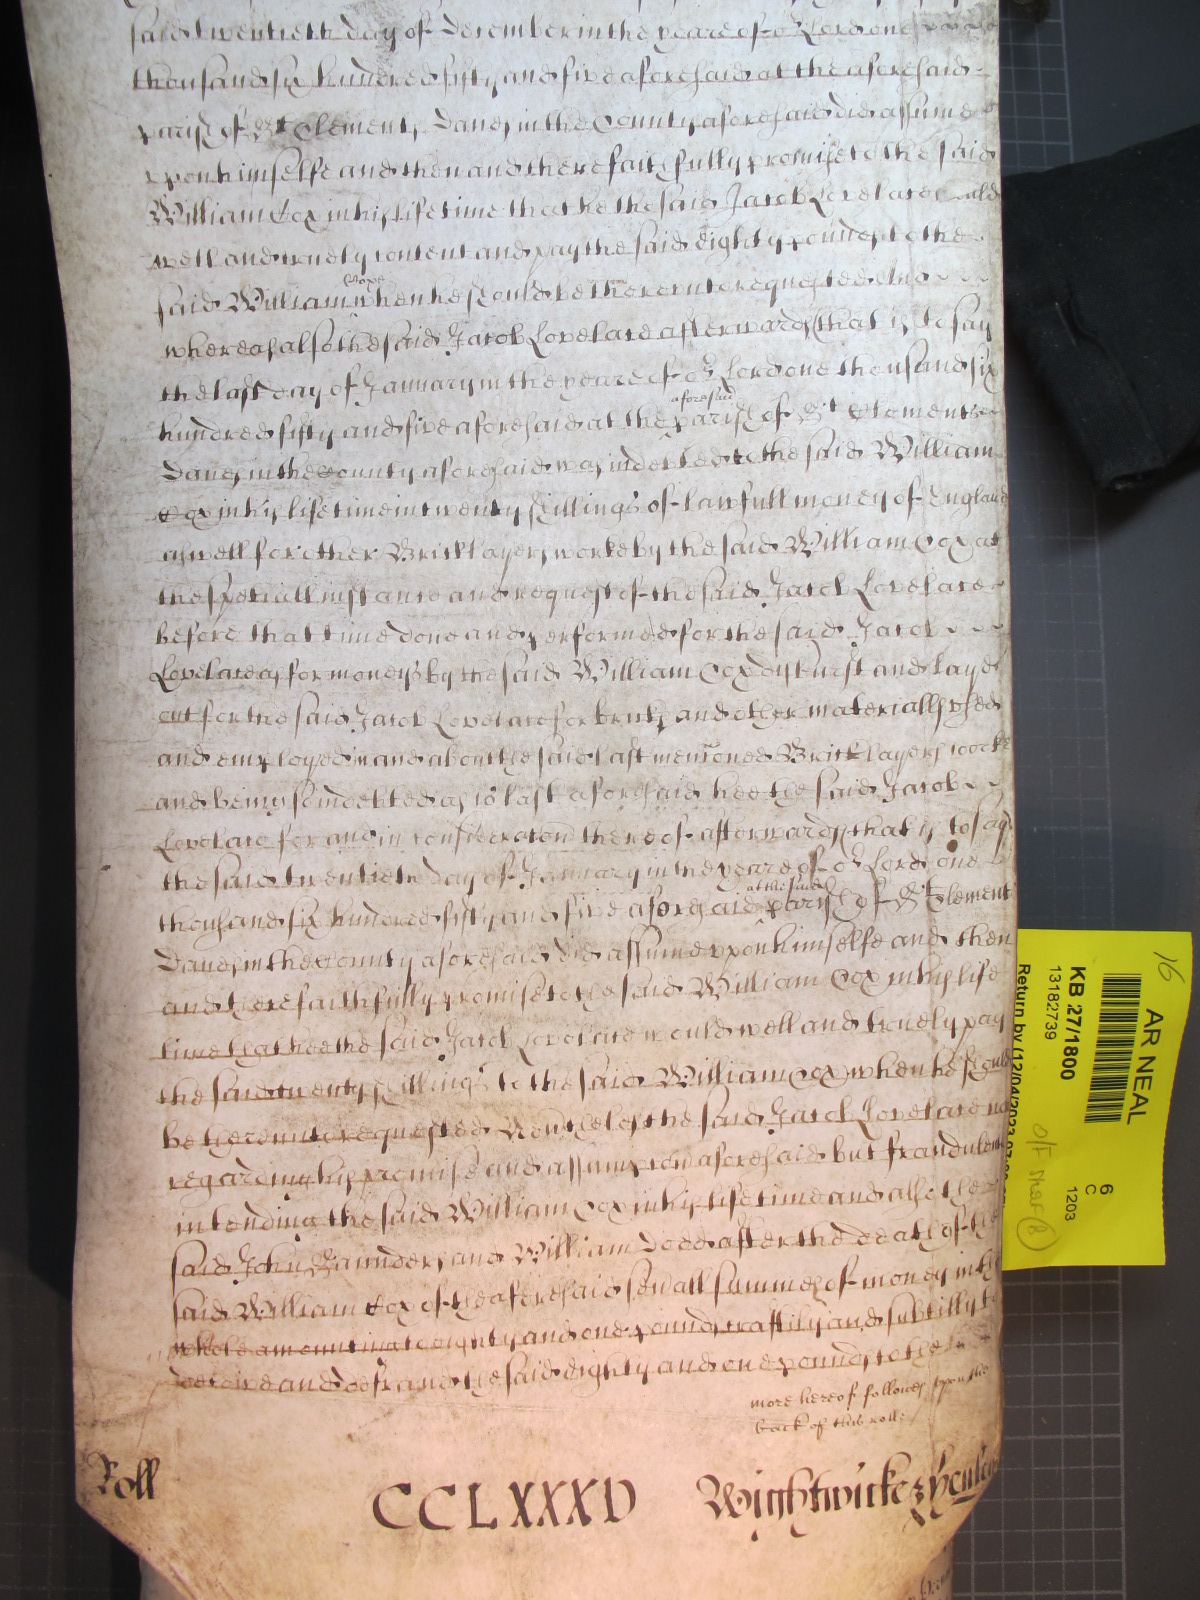 said twentieth day of December in the yeare of or Lord one
thousand six hundred fifty and five aforesaid at the aforesaid
parish of St Clement Danes in the County aforesaid did assume
upon himselfe and then and there faithfully promise to the said
William Cox in his life time that he the said Jacob Lovelace would
well and truely content and pay the said eighty pounds to the
said William Coxe when he should be thereunto requested And
whereas also the said Jacob Lovelace afterwards (that is to say
the last day of January in the yeare of or Lord one thousand six
hundred fifty and five aforesaid at the aforesaid parish of St Clement
Danes in the County aforesaid was indebted to the said William
Cox in his life time in twenty shillings of lawfull money of England
aswell for other Bricklayers worke by the said William Cox at
the speciall instance and request of the said Jacob Lovelace
before that time done and performed for the said Jacob
Lovelace as for moneys by the said William Cox disburst and layd
out for the said Jacob Lovelace for bricks and other materialls used
and employed in and about the said last mencioned Bricklayers worke
and being so indebted as is last aforesaid hee the said Jacob
Lovelace for and in consideracion thereof afterwards that is to say
the said twentieth day of January in the yeare of or Lord one
thousand six hundred fifty and five aforesaid at the said parish of St Clement
Danes in the County aforesaid did assume upon himselfe and then
and there faithfully promise to the said William Cox in his life
time that hee the said Jacob Lovelace would well and truely pay
the said twenty shillings to the said William Cox when he should
be thereunto requested Nevertheles the said Jacob Lovelace not
regarding his promise and assumpcion aforesaid but fraudulently
intending the said William Cox in his life time and also the
said John Saunders and William Deed after the death of the
said William Cox of the aforesaid severall summes of money in the
whole amounting to eighty and one pounds craftily and subtilly to
deceive and defraud the said eighty and one pounds to the
more hereof followes upon the
back of this roll
Roll
CCLXXXD
Wightwicke &
16
AR NEAL
KB 27/1800
13182739
6
C
1203
Return by (12/04/2023